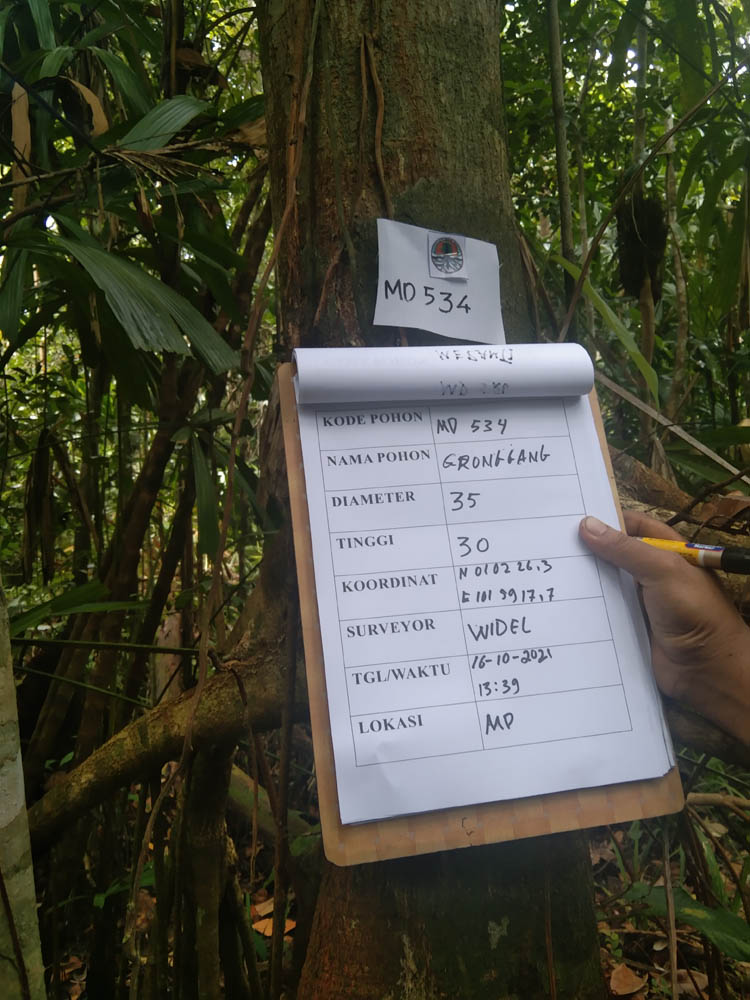 MD 534
KODE POHON MD 534
NAMA POHON GRONGGANG
DIAMETER 35
TINGGI 30
KOORDINAT N 01 02 26,3
E 101 99 17,7
SURVEYOR WIDEL
TGL/WAKTU 16-10-2021
13:39
LOKASI MD